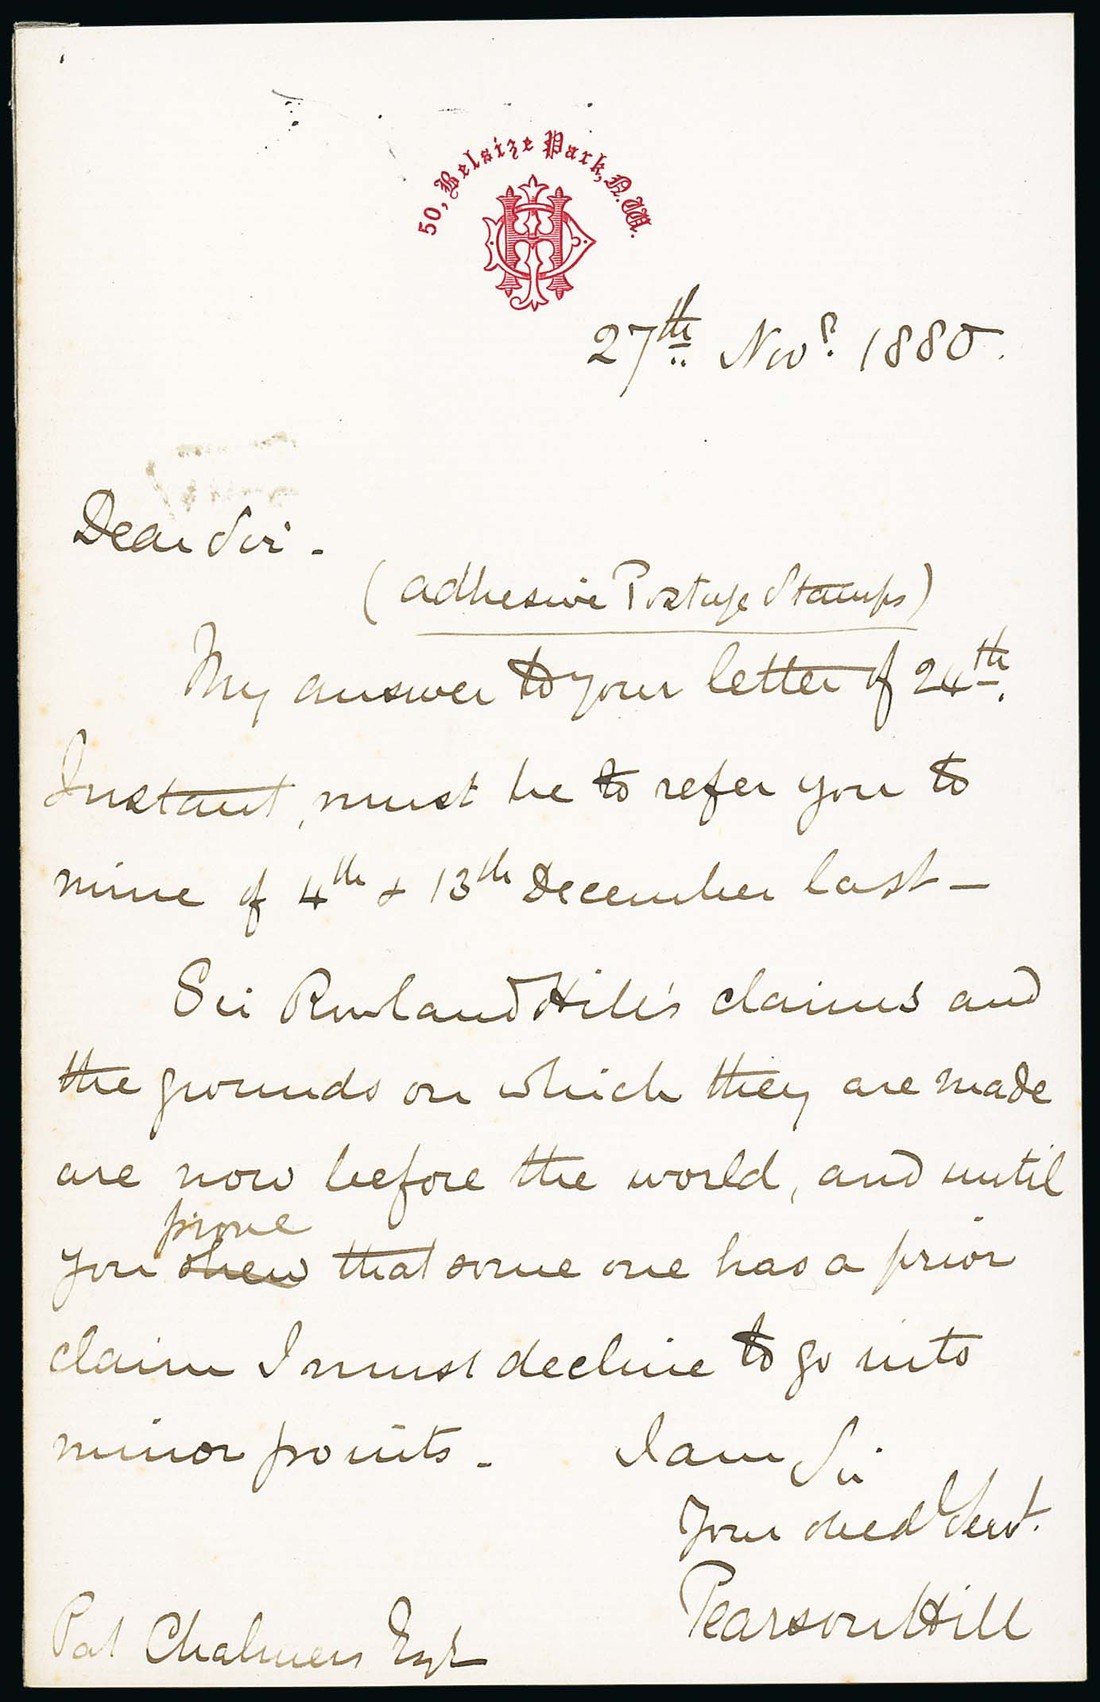 50, Belsize Park, N.W.
27th Novr. 1880.
Dear Sir -
(adhesive Postage Stamps)
My answer to your letter of 24th.
Instant, must be to refer you to
mine of 4th & 13th December last —
Sir Rowland Hill's claims and
the grounds on which they are made
are now before the world, and until
prove
you shew that some one has a prior
claim I must decline to go into
minor points. - I am Sir
Your obedt Servt.
Pearson Hill
Pat Chalmers Esqr